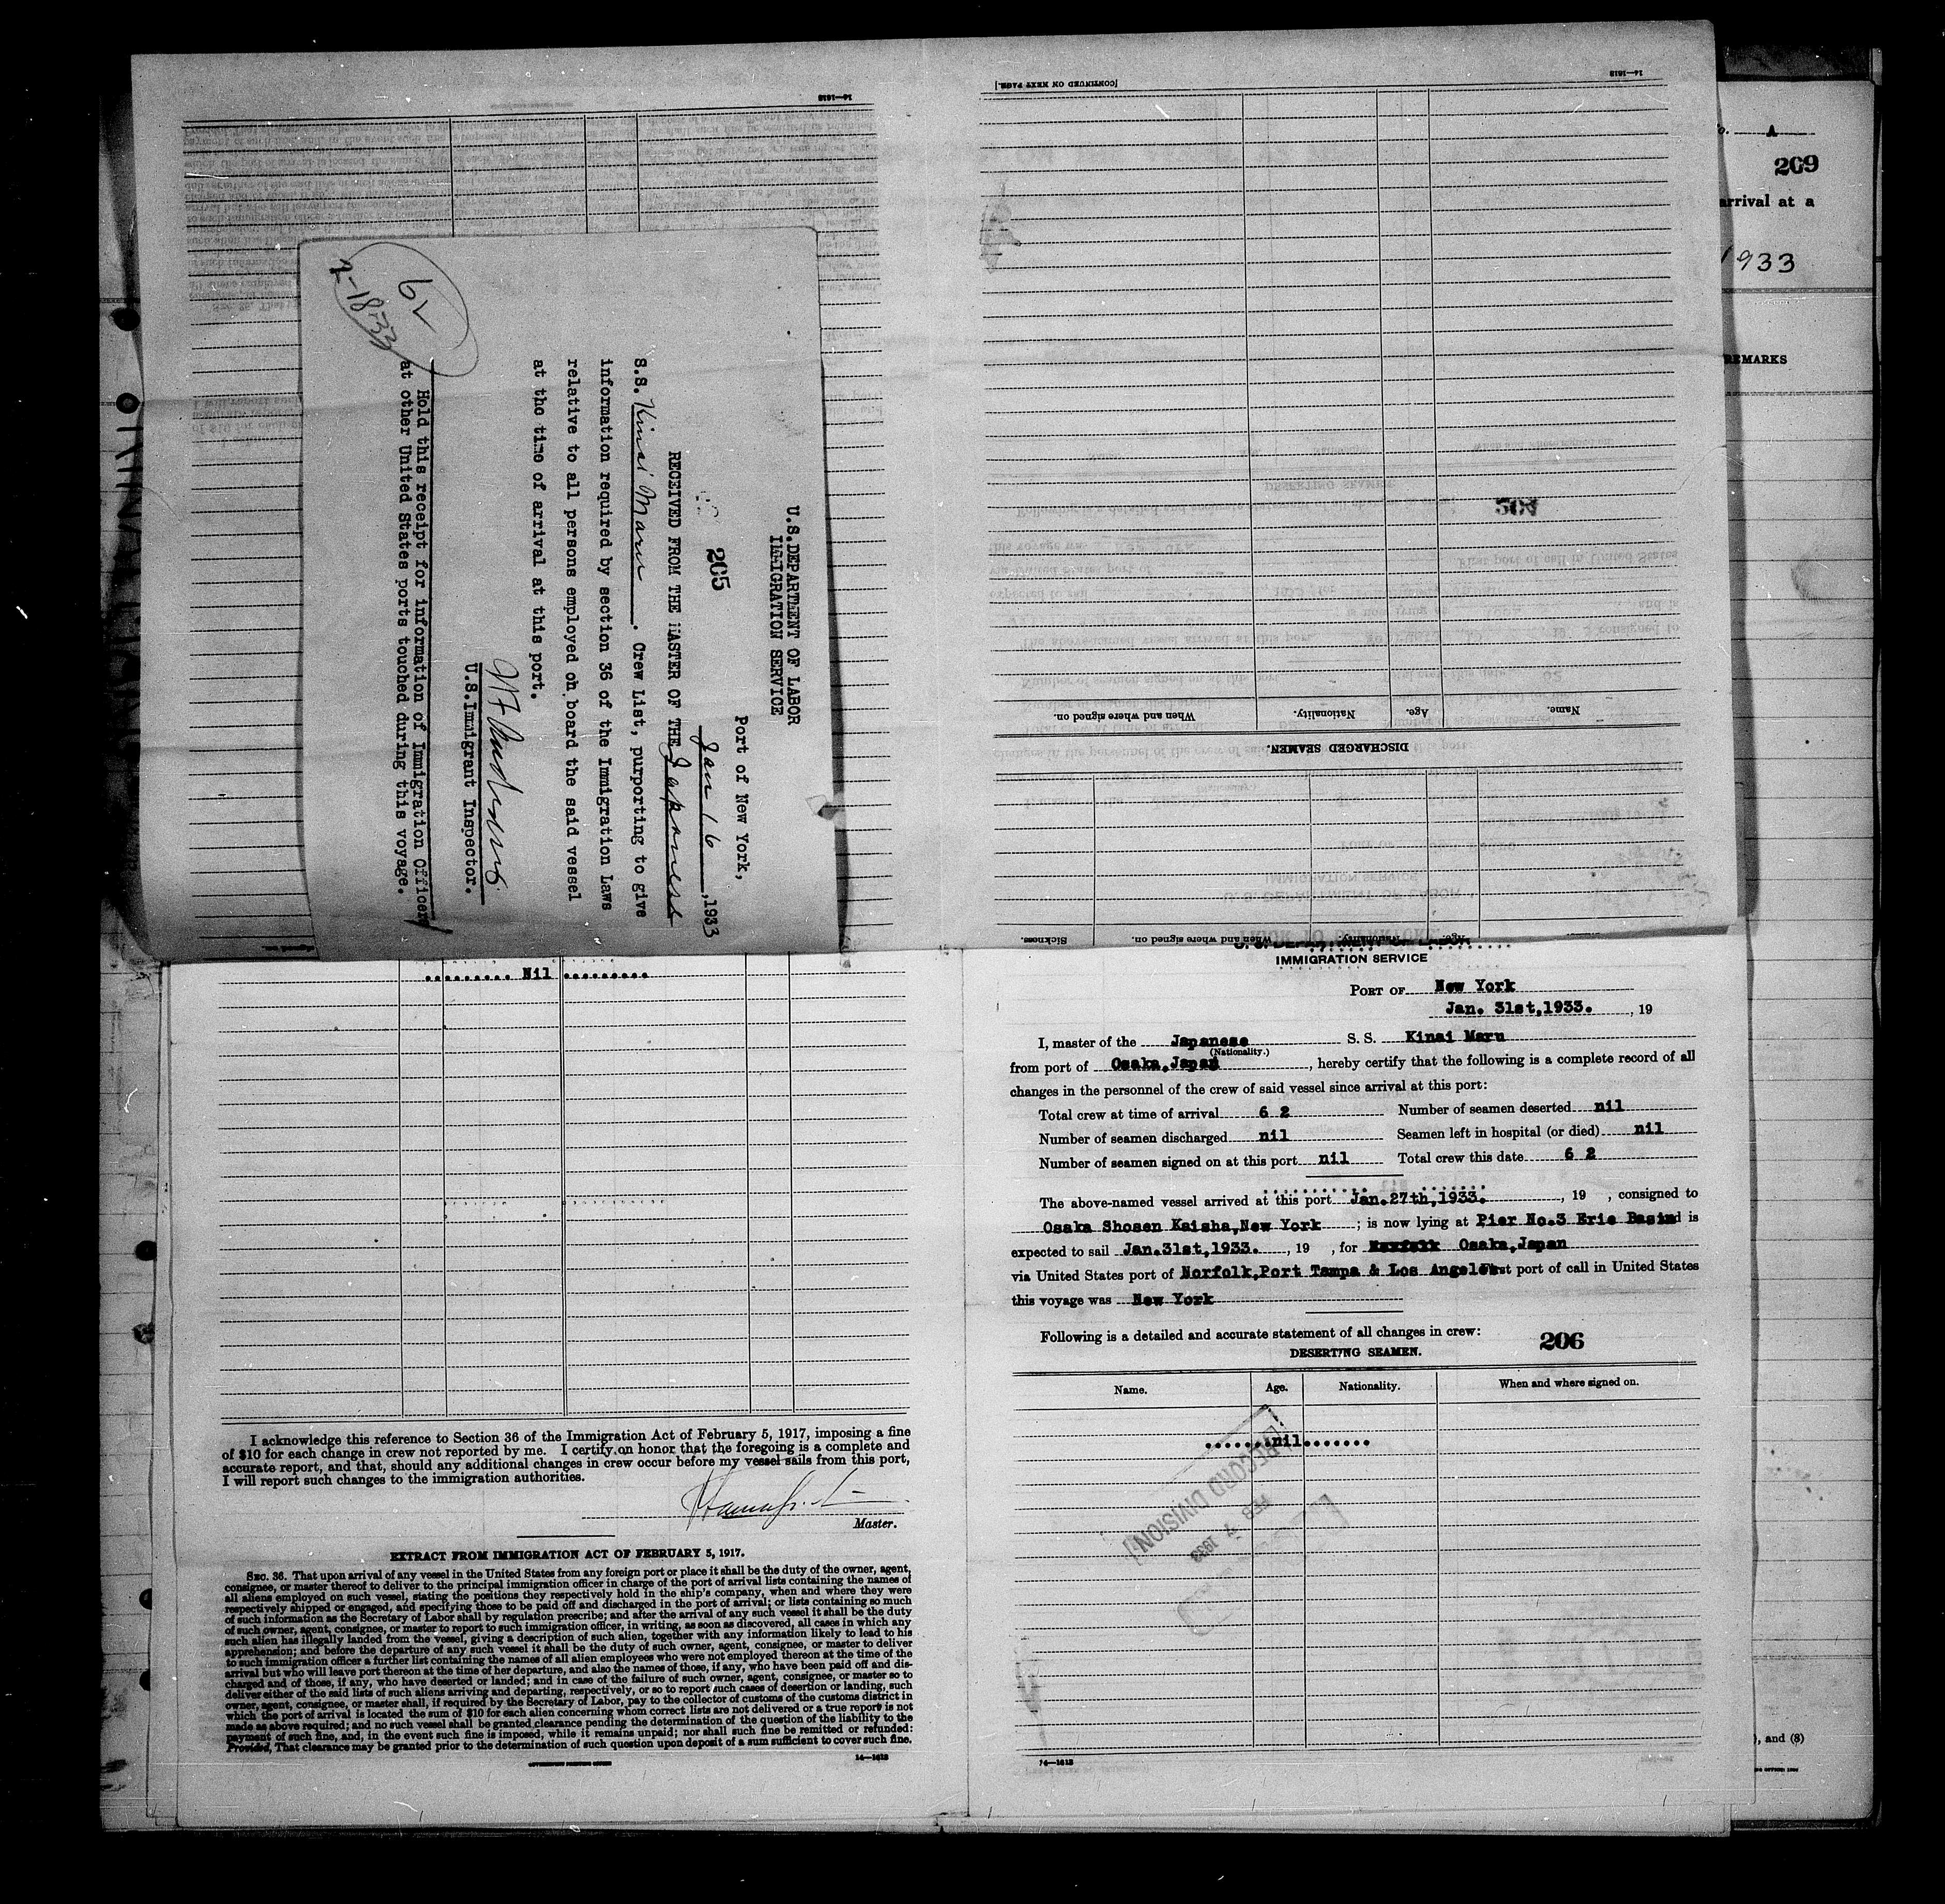 14—1613
[CONTINUED ON NEXT PAGE.]
14—1613
Name.
Age.
Nationality.
When and where signed on.
DISCHARGED SEAMEN.
Age.
Nationality.
When and where signed on.
Sickness.
264
A
209
arrival at a
1933
REMARKS
), and (8)
62
U.S.DEPARTMENT OF LABOR
IMMIGRATION SERVICE
Port of New York,
Jan 16, 1933
265
RECEIVED FROM THE MASTER OF THE Japanese
S.S. Kinai Maru. Crew List, purporting to give
information required by section 36 of the Immigration Laws
relative to all persons employed on board the said vessel
at the time of arrival at this port.
U.S.Immigrant Inspector.
Hold this receipt for information of Immigration Officers
at other United States ports touched during this voyage.
......... Nil .........
I acknowledge this reference to Section 36 of the Immigration Act of February 5, 1917, imposing a fine
of $10 for each change in crew not reported by me. I certify on honor that the foregoing is a complete and
accurate report, and that, should any additional changes in crew occur before my vessel sails from this port,
I will report such changes to the immigration authorities.
Master.
EXTRACT FROM IMMIGRATION ACT OF FEBRUARY 5, 1917.
SEC. 36. That upon arrival of any vessel in the United States from any foreign port or place it shall be the duty of the owner, agent,
consignee, or master thereof to deliver to the principal immigration officer in charge of the port of arrival lists containing the names of
all aliens employed on such vessel, stating the positions they respectively hold in the ship's company, when and where they were
respectively shipped or engaged, and specifying those to be paid off and discharged in the port of arrival; or lists containing so much
of such information as the Secretary of Labor shall by regulation prescribe; and after the arrival of any such vessel it shall be the duty
of such owner, agent, consignee, or master to report to such immigration officer, in writing, as soon as discovered, all cases in which any
such alien has illegally landed from the vessel, giving a description of such alien, together with any information likely to lead to his
apprehension; and before the departure of any such vessel it shall be the duty of such owner, agent, consignee, or master to deliver
to such immigration officer a further list containing the names of all alien employees who were not employed thereon at the time of the
arrival but who will leave port thereon at the time of her departure, and also the names of those, if any, who have been paid off and dis-
charged and of those, if any, who have deserted or landed; and in case of the failure of such owner, agent, consignee, or master so to
deliver either of the said lists of such aliens arriving and departing, respectively, or so to report such cases of desertion or landing, such
owner, agent, consignee, or master shall, if required by the Secretary of Labor, pay to the collector of customs of the customs district in
which the port of arrival is located the sum of $10 for each alien concerning whom correct lists are not delivered or a true report is not
made as above required; and no such vessel shall be granted clearance pending the determination of the question of the liability to the
payment of such fine, and, in the event such fine is imposed, while it remains unpaid; nor shall such fine be remitted or refunded:
Provided, That clearance may be granted prior to the determination of such question upon deposit of a sum sufficient to cover such fine.
GOVERNMENT PRINTING OFFICE
14—1613
U. S. DEPARTMENT OF LABOR
IMMIGRATION SERVICE
PORT OF New York
Jan. 31st,1933. , 19
I, master of the Japanese S. S. Kinai Maru
(Nationality.)
from port of Osaka,Japan , hereby certify that the following is a complete record of all
changes in the personnel of the crew of said vessel since arrival at this port:
Total crew at time of arrival 6 2 Number of seamen deserted nil
Number of seamen discharged nil Seamen left in hospital (or died) nil
Number of seamen signed on at this port nil Total crew this date 6 2
The above-named vessel arrived at this port Jan.27th,1933. , 19 , consigned to
Osaka Shosen Kaisha,New York ; is now lying at Pier No.3 Erie Basin and is
expected to sail Jan.31st,1933. , 19 , for Norfolk Osaka,Japan
via United States port of Norfolk,Port Tampa & Los Angeles. First port of call in United States
this voyage was New York
Following is a detailed and accurate statement of all changes in crew:
206
DESERTING SEAMEN.
Name. Age. Nationality. When and where signed on.
.......nil.......
RECORD DIVISION
FEB 7 1933
14—1613